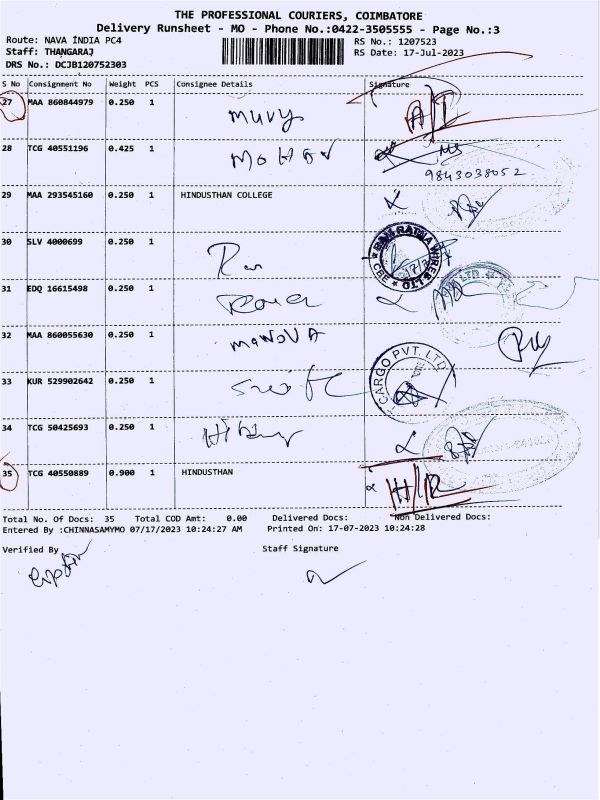 THE PROFESSIONAL COURIERS, COIMBATORE
Delivery Runsheet - MO - Phone No.:0422-3505555 - Page No.:3
Route: NAVA INDIA PC4 RS No.: 1207523
Staff: THANGARAJ RS Date: 17-Jul-2023
DRS No.: DCJB120752303
S No Consignment No Weight PCS Consignee Details Signature
27 MAA 860844979 0.250 1
28 TCG 40551196 0.425 1
9843038052
29 MAA 293545160 0.250 1 HINDUSTHAN COLLEGE
30 SLV 4000699 0.250 1 RATNA WIRES LTD CBE
31 EDQ 16615498 0.250 1
32 MAA 860055630 0.250 1 MANOVA
33 KUR 529902642 0.250 1 CARGO PVT. LTD
34 TCG 50425693 0.250 1
35 TCG 40550889 0.900 1 HINDUSTHAN
Total No. Of Docs: 35 Total COD Amt: 0.00 Delivered Docs: Non Delivered Docs:
Entered By :CHINNASAMYMO 07/17/2023 10:24:27 AM Printed On: 17-07-2023 10:24:28
Verified By Staff Signature